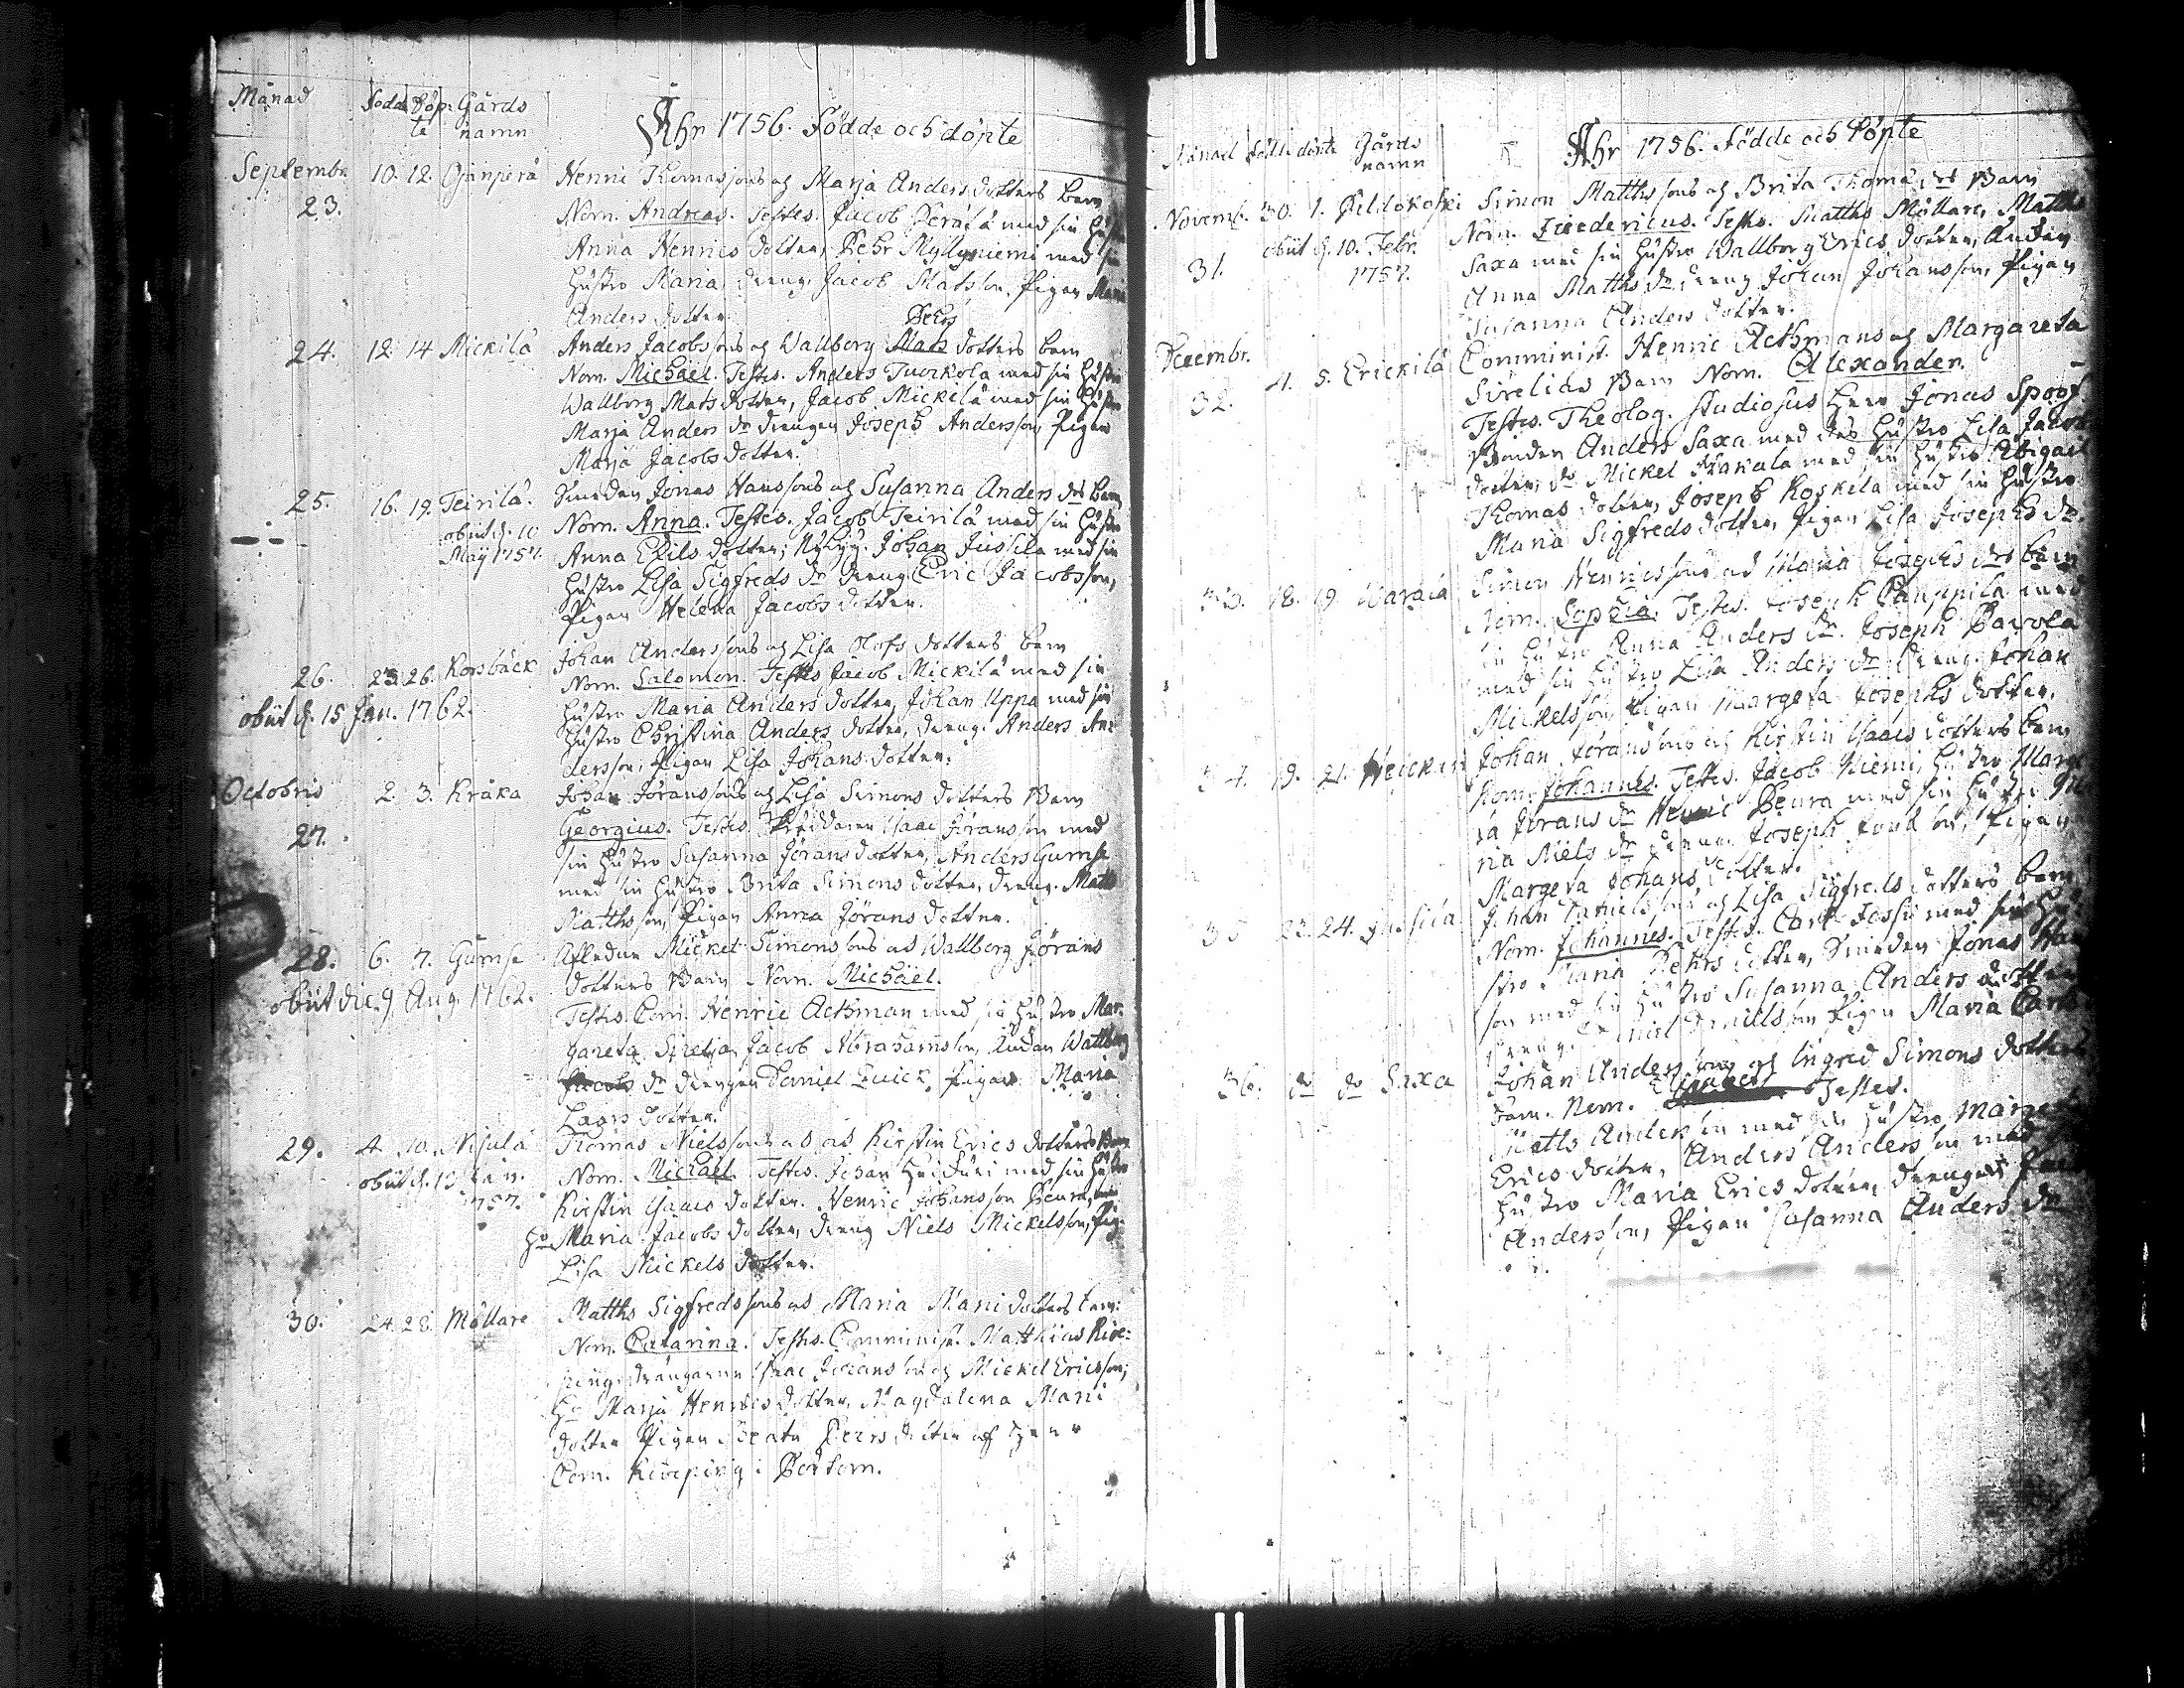 Månad Födde Döpte Gårds namn
Åhr 1756. Födde och döpte
Septembr. 10. 12. Ojanperä Henric Thomassons och Marja Anders dotters barn
23. Nom. Andreas. Testes. Jacob Perälä med sin hustru
Anna Henrics dotter, Pehr Myllyniemi med sin
hustro Maria, dreng. Jacob Matsson, Pigan Maria
Anders dotter.
Pehrs
24. 12. 14 Mickilä Anders Jacobssons och Wallborg Mats dotters barn
Nom. Michael. Testes. Anders Tuorkola med sin hustro
Wallborg Mats dotter, Jacob Mickilä med sin hustro
Marja Anders dr drengen Joseph Andersson, Pigan
Marja Jacobs dotter.
25. 16. 19. Teirilä. Smeden Jonas Hanssons och Susanna Anders drs barn
obiit d. 10 Maji 1757. Nom. Anna. Testes. Jacob Teirilä med sin hustro
Anna Eliis dotter, Nybyg. Johan Jussila med sin
hustro Lisa Sigfreds dr dreng. Eric Jacobsson,
Pigan Helena Jacobs dotter.
26. 25. 26. Korsbäck Johan Anderssons och Lisa Olofs dotters barn
Nom. Salomon. Testes Jacob Mickilä med sin
obiit d. 15 Jan. 1762. hustro Maria Anders dotter, Johan Uppa med sin
hustro Christina Anders dotter, dreng. Anders An-
dersson, Pigan Lisa Johans dotter.
Octobris 2. 3. Kråka Johan Göranssons och Lisa Simons dotters barn
27. Georgius. Testes. Isaac Göransson med
sin hustro Susanna Görans dotter, Anders Gumse
med sin hustro Brita Simons dotter, dreng. Matts
Matthsson, Pigan Anna Görans dotter.
28. 6. 7. Gumse Mickel Simonssons och Wallborg Görans
obiit die 9 Aug. 1762. dotters barn Nom. Michael.
Testes. Com. Henric Aethman med sin hustro Mar-
gareta Sirelia, Jacob Abrahamsson, Wallborg
Jacobs dr drengen Daniel Quick, Pigan Maria
Lars dotter.
29. 4. 10. Nisula Thomas Nielssons och Kirstin Erics dotters barn
obiit d. 1757. Nom. Michael. Testes. Johan med sin hustro
Kirstin Isaacs dotter. Henric Johansson Peura,
Maria Jacobs dotter, dreng Niels Mickelsson, Pig.
Lisa Mickels dotter.
30. 24. 28. Möllare Matths Sigfredssons och Maria Mani dotters barn
Nom. Catarina. Testes. Comminist. Matthias Kive-
ping, drängarne Isaac Johansson och Mickel Ericsson,
Marja Henrics dotter, Magdalena Mani
dotter Pigan Beata Pehrs dotter
Com. Kiveping i Pörtom.
Månad Födde döpte Gårds namn
Åhr 1756. Födde och Döpte
Novemb. 30. 1. Pildikoski Simon Matthssons och Brita Thomæ drs Barn
31. obiit d. 10. Febr. 1757. Nom. Friedericus. Testes. Matths Möllare, Matths
Saxa med sin hustro Wallborg Erics dotter,
Anna Matths dr dreng Johan Johansson, Pigan
Susanna Anders dotter.
Decembr. 4. 5. Erickilä Comminist. Henric Aethmans och Margareta
32. Sirelias Barn Nom. Alexander.
Testes. Theolog. Studiosus Herr Jonas Spoof
Bonden Anders Saxa med des hustro Lisa Jacobs
dotter, do Mickel Hakala med sin hustro Abigail
Thomas dotter, Joseph Koskela med sin hustro
Maria Sigfreds dotter, Pigan Lisa Josephs dr.
33. 18. 19. Simon Henricssons och Maria Josephs drs barn
Nom. Sophia. Testes. Joseph Panppila med
sin hustro Anna Anders dr. Joseph Pavola
med sin hustro Lisa Anders dr dreng. Johan
Mickelsson, Pigan Margeta Josephs dotter.
34. 19. 21. Johan Göranssons och Kirstin Isaacs dotters barn
Nom. Johannes. Testes. Jacob Niemi, hustro Mari-
ia Görans dr Henric Peura med sin hustro
Niels dr dreng. Joseph Pigan
Margeta Johans dotter.
35 23. 24. Jussila Johan Danielssons och Lisa Sigfreds dotters barn
Nom. Johannes. Testes. Carl Jossi med sin hu-
stro Maria Pehrs dotter, Smeden Jonas Hans-
son med sin hustro Susanna Anders dotter
dreng. Danielsson Pigan Maria Carls
36. do do Saxa Johan Anderssons och Ingred Simons dotters
barn. Nom. Testes.
Matts Andersson med sin hustro Margeta
Erics dotter, Anders Andersson med
hustro Maria Erics dotter, drengen
Andersson, Pigan Susanna Anders dr